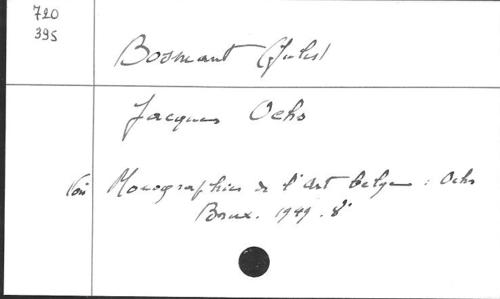 720
395
Bosmant (Jules)
Jacques Ochs
Voir Monographies de l'Art belge : Ochs
Brux. 1949. 8°